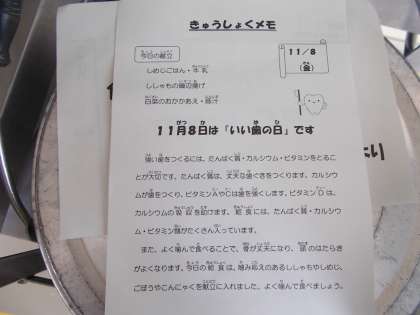 きゅうしょくメモ
今日の献立
11/8
(金)
しめじごはん・牛乳
ししゃもの磯辺揚げ
白菜のおかかあえ・豚汁
11月8日は「いい歯の日」です
強い歯をつくるには、たんぱく質・カルシウム・ビタミンをとるこ
とが大切です。たんぱく質は、丈夫な歯ぐきをつくります。カルシウ
ムが歯をつくり、ビタミンAやCは歯を強くします。ビタミンDは、
カルシウムの吸収を助けます。給食には、たんぱく質・カルシウ
ム・ビタミン類がたくさん入っています。
また、よく噛んで食べることで、骨が丈夫になり、頭のはたらき
がよくなります。今日の給食は、噛み応えのあるししゃもやしめじ、
ごぼうやこんにゃくを献立に入れました。よく噛んで食べましょう。
より